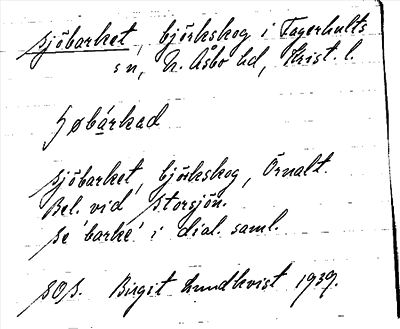 sjöbarket, björkskog i Fagerhults
sn, N. Åsbo hd, Krist. l.
sjöbarket, björkskog, Örnalt.
Bel. vid Storsjön.
Se 'barke' i dial. saml.
SOS. Birgit Lundkvist 1939.